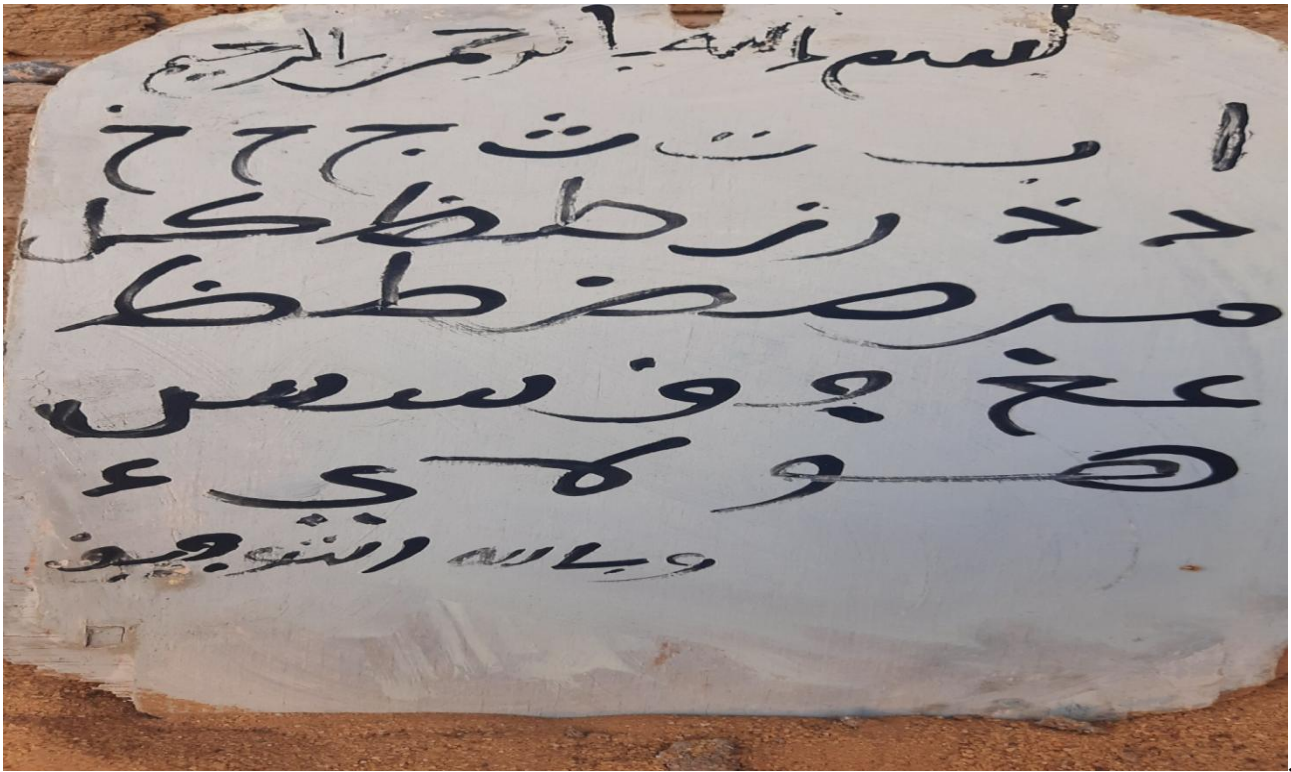 بسم الله الرحمن الرحيم
ا ب ت ث ج ح خ
د ذ ر ز ط ظ ك ل
م ن ص ض ط ظ
ع غ ڢ ڧ س س
ه و لا ي ء
وبالله التوڢيڧ